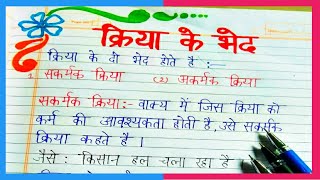 क्रिया के भेद
क्रिया के दो भेद होते है :-
1. सकर्मक क्रिया (2) अकर्मक क्रिया
सकर्मक क्रिया:- वाक्य में जिस क्रिया को
कर्म की आवश्यकता होती है, उसे सकर्मक
क्रिया कहते है ।
जैसे : किसान हल चला रहा है